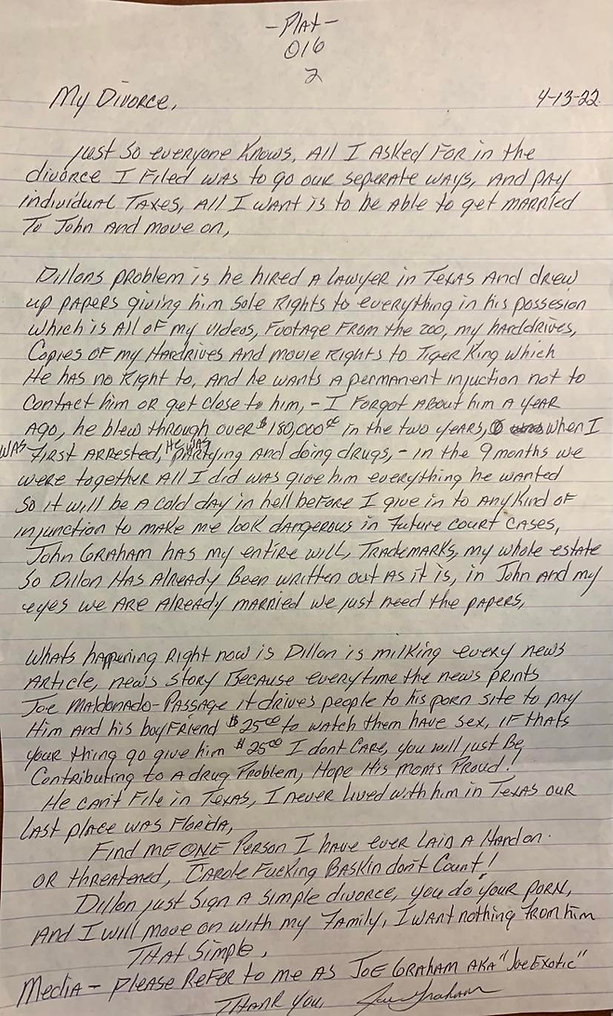 -Plat-
016
2
My Divorce, 4-13-22
just so everyone knows, All I Asked For in the
divorce I Filed was to go our seperate ways, And pay
individual Taxes, All I want is to be able to get MARRIED
To John and move on,
Dillons problem is he hired A Lawyer in Texas And drew
up papers giving him Sole Rights to everything in his possesion
which is All of my videos, Footage From the zoo, my harddrives,
Copies of my Hardrives And movie rights to Tiger King which
He has no Right to, And he wants A permanent injuction not to
Contact him or get close to him, - I Forgot About him A year
Ago, he blew through over $180,000.00 in the two years, when I
was First Arrested, he was partying And doing drugs, - in the 9 months we
were together All I did was give him everything he wanted
So it will be A Cold day in hell before I give in to Any Kind of
injunction to make me look dangerous in Future court cases,
John Graham has my entire will, Trademarks, my whole estate
So Dillon Has Already Been written out As it is, in John And my
eyes we Are Already married we just need the papers,
whats happening Right now is Dillon is milking every news
Article, news story Because everytime the news prints
Joe Maldonado-Passage it drives people to his porn site to pay
Him and his boyfriend $25.00 to watch them have sex, if thats
your thing go give him $25.00 I dont Care, you will just Be
Contributing to A drug Problem, Hope His moms Proud!
He cant File in Texas, I never lived with him in Texas our
last place was Florida,
Find me ONE Person I have ever laid A Hand on
or threatened, Carole Fucking Baskin dont Count!
Dillon just sign A simple divorce, you do your porn,
And I will move on with my Family, I want nothing from him
That Simple,
Media - Please Refer to me As Joe Graham AKA "Joe Exotic"
Thank you, Joe Graham